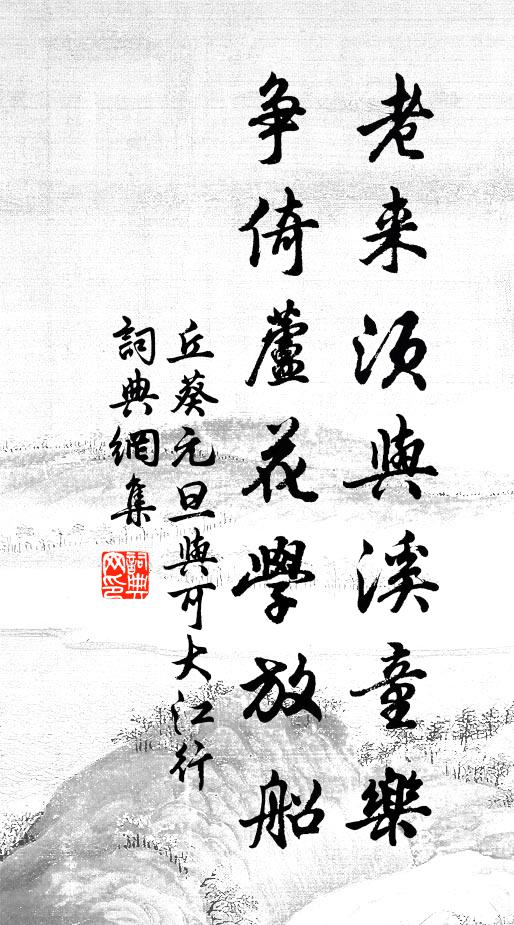 老来须與溪童樂
争倚蘆花學放船
丘葵元旦與可大江行
詞典網集
詞典网印